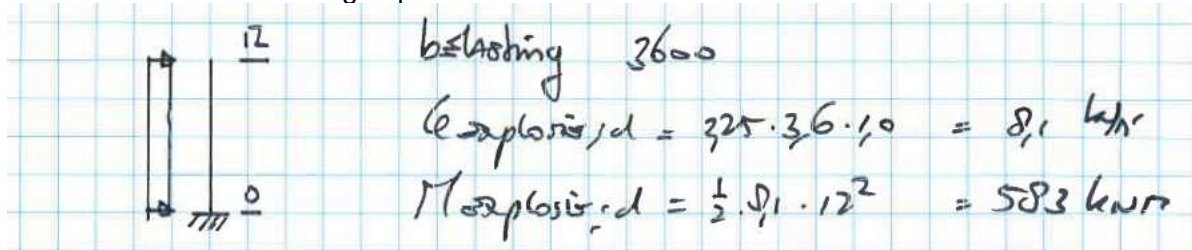 12
belasting 3600
q explosie;d = 2,25 · 3,6 · 1,0 = 8,1 kN/m
0
M explosie;d = ½ · 8,1 · 12² = 583 kNm